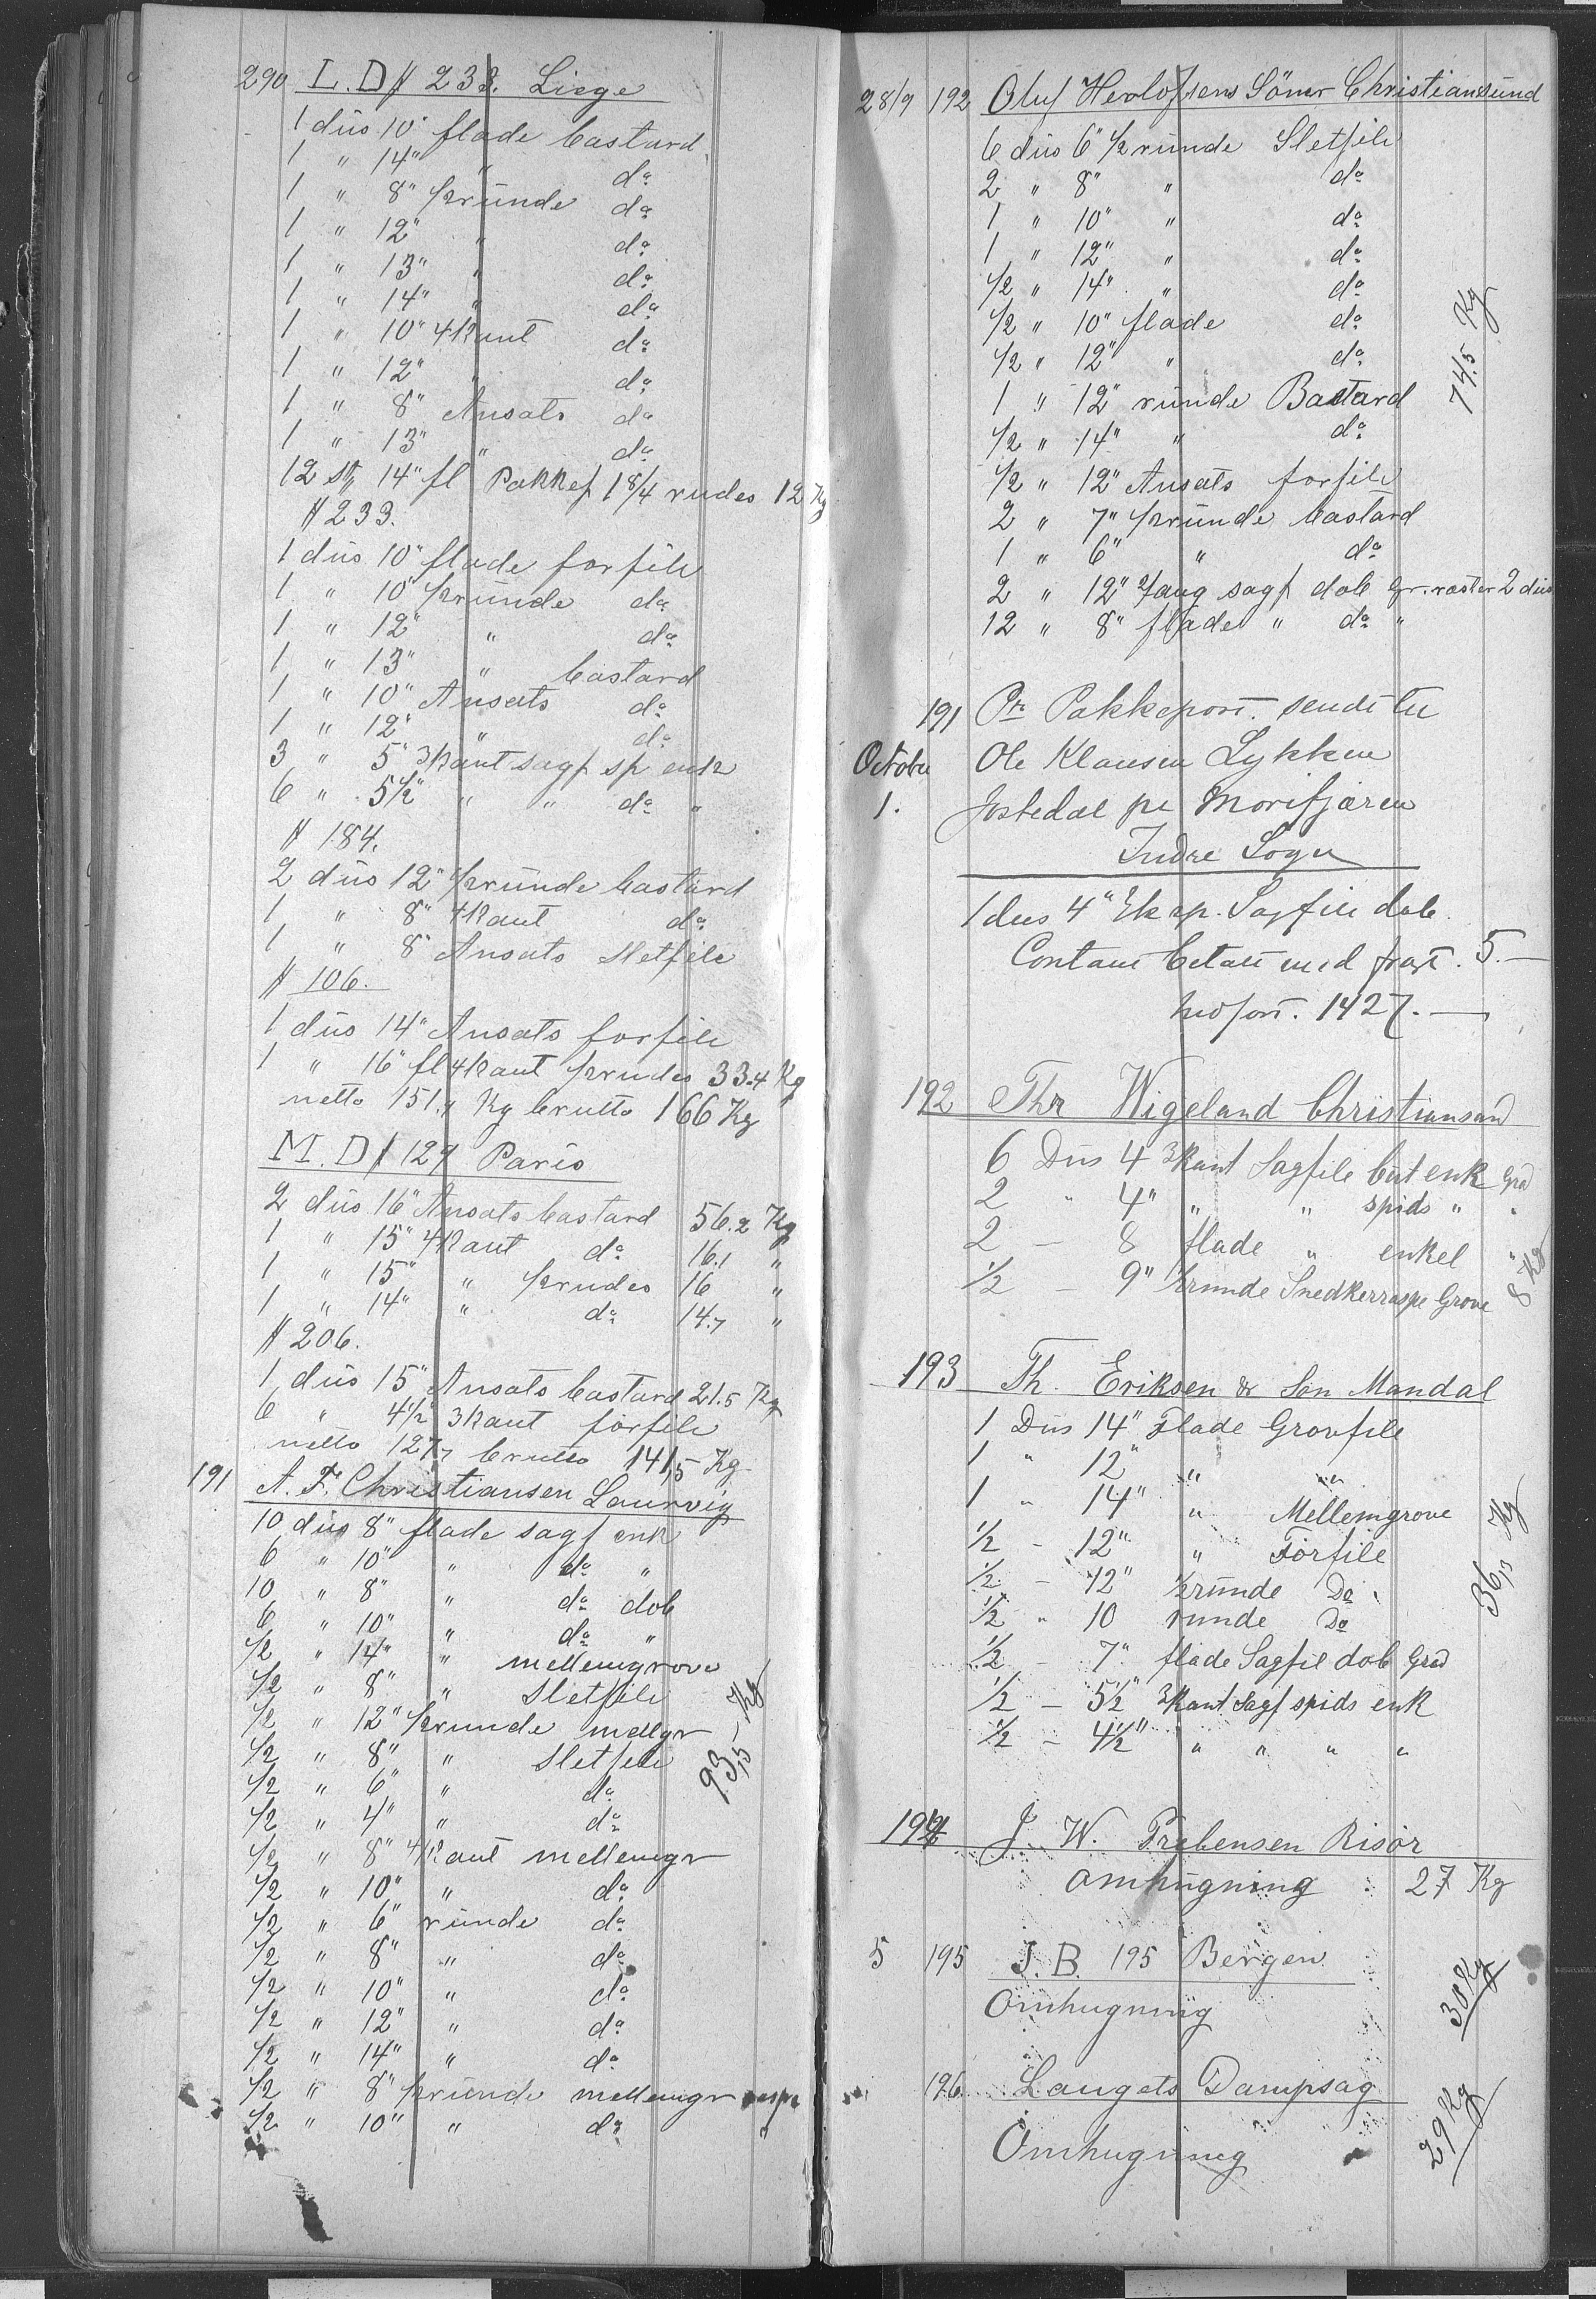 290 L. D # 233. Liege
1 düs 10" flade bastard
1 " 14" " do
1 " 8" ½ründe do
1 " 12" " do
1 " 13" " do
1 " 14" " do
1 " 10" 4kant do
1 " 12" " do
1 " 8" Ansats do
1 " 13" " do
12 st 14" fl Pakkef 1 8/4 rudes 12 Kg
# 233.
1 düs 10" flade forfile
1 " 10" ½ründe do
1 " 12" " do
1 " 13" " bastard
1 " 10" Ansats do
1 " 12" " do
3 " 5" 3kant sagf sp enk
6 " 5½" " " do "
# 184.
2 düs 12" ½ründe bastard
1 " 8" 4kant do
1 " 8" Ansats Sletfile
# 106.
1 düs 14" Ansats forfile
1 " 16" fl 4kant ½rudes 33.4 Kg
netto 151.4 Kg brutto 166 Kg
M. D # 129 Paris
2 düs 16" Ansats bastard 56.2 Kg
1 " 15" 4kant do 16.1 "
1 " 15" " ½rudes 16 "
1 " 14" " do 14.7 "
# 206.
1 düs 15" Ansats bastard 21.5 Kg
6 " 4½" 3kant forfile
netto 127.7 brutto 141,5 Kg
191 A. F. Christiansen Laurvig
10 düs 8" flade sagf enk
6 " 10" " do "
10 " 8" " do dob
6 " 10" " do "
½ " 14" " mellemgrove
½ " 8" " Sletfile
½ " 12" ½runde mellgr
½ " 8" " Sletfile
½ " 6" " do
½ " 4" " do
½ " 8" 4kant mellemgr
½ " 10" " do
½ " 6" ründe do
½ " 8" " do
½ " 10" " do
½ " 12" " do
½ " 14" " do
½ " 8" ½ründe mellemgr raspe
½ " 10" " do "
93,5 Kg
28/9 192 Oluf Herlofsens Söner Christiansund
6 düs 6" ½ründe Sletfile
2 " 8" " do
1 " 10" " do
1 " 12" " do
½ " 14" " do
½ " 10" flade do
½ " 12" " do
1 " 12" ründe Bastard
½ " 14" " do
½ " 12" Ansats forfile
2 " 7" ½ründe bastard
1 " 6" " do
2 " 12" sagf dob gr. 2 düs
12 " 8" flade " do "
74.5 Kg
191 Pr Pakkepost. sendt til
October Ole Klausen Lykken
1. Jostedal pr Morifjæren
Indre Sogn
1 dus 4" sp. Sagfile dob
Contant betalt med fragt. 5.—
1427.—
192 Thr Wigeland Christiansand
6 Dus 4 3kant Sagfile but enk Grad
2 " 4" " " spids " "
2 — 8 flade " enkel "
½ — 9" ½runde Snedkerraspe Grove
8 Kg
193 Th. Eriksen & Søn Mandal
1 Dus 14" Flade Grovfile
1 " 12" " "
1 " 14" " Mellemgrove
½ - 12" " Forfile
½ — 12" ½ründe Do
½ " 10 runde Do
½ — 7" flade Sagfil dob Grad
½ — 5½" 3kant Sagf spids enk
½ — 4½" " " " "
36,5 Kg
194 J. W. Prebensen Risör
Omhugning 27 Kg
5 195 J. B. 195 Bergen
Omhugning
30 Kg
196 Laugets Dampsag
Omhugning
29 Kg